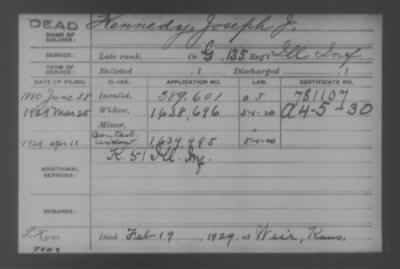 DEAD Kennedy, Joseph J.
NAME OF SOLDIER:
SERVICE: Late rank, Co. G, 135 Reg't Ill. Inf.
TERM OF SERVICE: Enlisted , 1 Discharged , 1
DATE OF FILING. CLASS. APPLICATION NO. LAW. CERTIFICATE NO.
1880 June 28 Invalid, 389,601 781107
1929 Mar 25 Widow, 1638,696 5-1-20 A 4-5-30
Minor,
1929 Apr 11 Contest. widow 1639,995 5-1-20
K. 51 Ill. Inf.
ADDITIONAL SERVICES:
REMARKS:
Died Feb 19, 1929, at Weir, Kans.